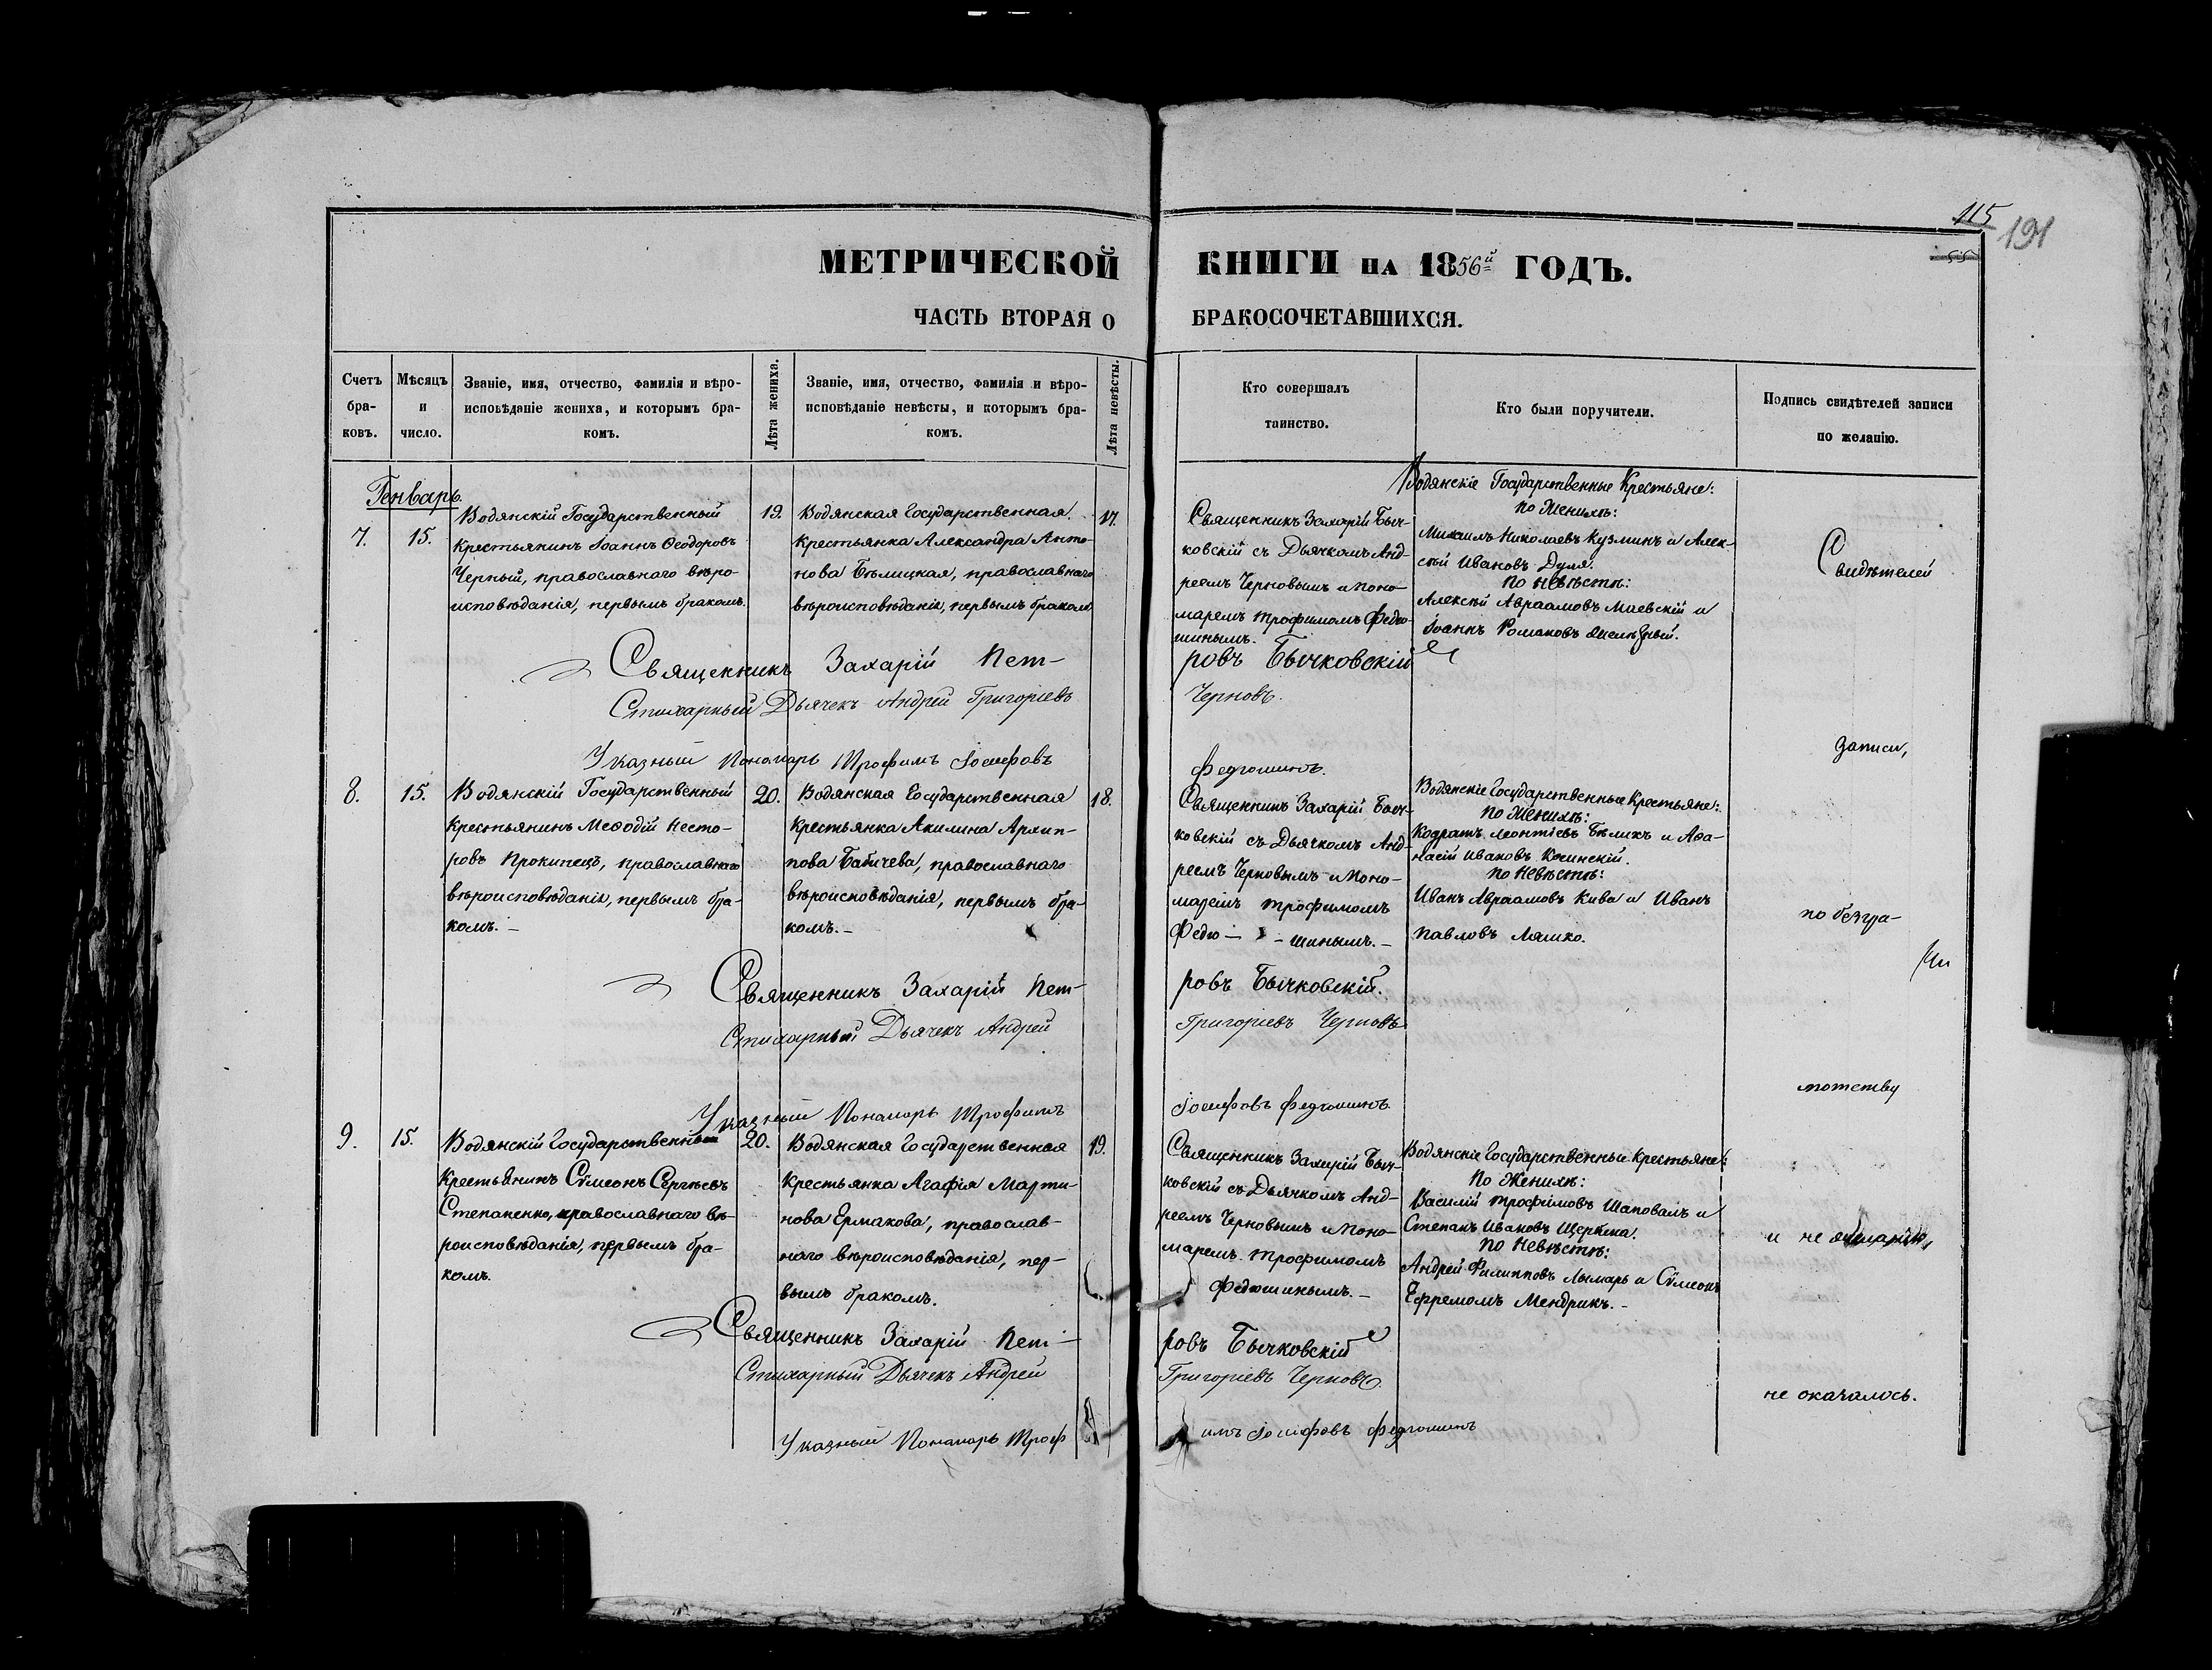 115
191
МЕТРИЧЕСКОЙ КНИГИ НА 1856й ГОДЪ.
ЧАСТЬ ВТОРАЯ О БРАКОСОЧЕТАВШИХСЯ.
Счетъ бра-ковъ.
Мѣсяцъ и число.
Званіе, имя, отчество, фамилія и вѣро-
исповѣданіе жениха, и которымъ бра-
комъ.
Лѣта жениха.
Званіе, имя, отчество, фамилія и вѣро-
исповѣданіе невѣсты, и которымъ бра-
комъ.
Лѣта невѣсты.
Кто совершалъ
таинство.
Кто были поручители.
Подпись свидѣтелей записи
по желанію.
Генварь.
7.
15.
Водянскій Государственный
Крестьянинъ Іоаннъ Ѳеодоровъ
Черный, православнаго вѣро-
исповѣданія, первымъ бракомъ.
19.
Водянская Государственная
Крестьянка Александра Анто-
нова Бѣлицкая, православнаго
вѣроисповѣданія, первымъ бракомъ
17.
Священникъ Захарій Быч-
ковскій съ Дьячкомъ Анд-
реемъ Черновымъ и Поно-
маремъ Трофимомъ Федю-
шинымъ.
Водянскіе Государственные Крестьяне:
По Женихѣ:
Михаилъ Николаевъ Кузминъ и Алек-
сѣй Ивановъ Дуля.
По Невѣстѣ:
Алексѣй Авраамовъ Маевскій и
Іоаннъ Романовъ
Свидѣтелей
Священникъ Захарій Пет-
ровъ Бычковскій
Стихарный Дьячекъ Андрей Григоріевъ
Черновъ.
Указный Пономарь Трофимъ Іосифовъ
Федюшинъ.
записи,
8.
15.
Водянскій Государственный
Крестьянинъ Меѳодій Несто-
ровъ Прокипецъ, православнаго
вѣроисповѣданія, первымъ бра-
комъ.-
20.
Водянская Государственная
Крестьянка Акилина Архип-
пова Бабичева, православнаго
вѣроисповѣданія, первымъ бра-
комъ.-
18.
Священникъ Захарій Быч-
ковскій съ Дьячкомъ Анд-
реемъ Черновымъ и Поно-
маремъ Трофимомъ
Федю- - шинымъ.-
Водянскіе Государственные Крестьяне:
По Женихѣ:
Кодратъ Леонтіевъ Бѣликъ и Аѳа-
насій Ивановъ Косинскій.
По Невѣстѣ:
Иванъ Авраамовъ Кива и Иванъ
Павловъ Ляшко.
по безгра-
Священникъ Захарій Пет-
ровъ Бычковскій.
Стихарный Дьячекъ Андрей
Григоріевъ Черновъ
Указный Пономарь Трофимъ
Іосифовъ Федюшинъ.
мотству
9.
15.
Водянскій Государственный
Крестьянинъ Сѵмеонъ Сергѣевъ
Степаненко, православнаго вѣ-
роисповѣданія, первымъ бра-
комъ.
20.
Водянская Государственная
Крестьянка Агафія Марти-
нова Ермакова, православ-
наго вѣроисповѣданія, пер-
вымъ бракомъ.
19.
Священникъ Захарій Быч-
ковскій съ Дьячкомъ Анд-
реемъ Черновымъ и Поно-
маремъ Трофимомъ
Федюшинымъ.-
Водянскіе Государственные Крестьяне:
По Женихѣ:
Василій Трофимовъ Шаповалъ и
Степанъ Ивановъ Щербина.
По Невѣстѣ:
Андрей Филипповъ Лымарь и Сѵмеонъ
Ефремомъ Мендрикъ.-
и не
Священникъ Захарій Пет-
ровъ Бычковскій
Стихарный Дьячекъ Андрей
Григоріевъ Черновъ.
не оказалось.
Указный Пономарь Троф
имъ Іосифовъ Федюшинъ